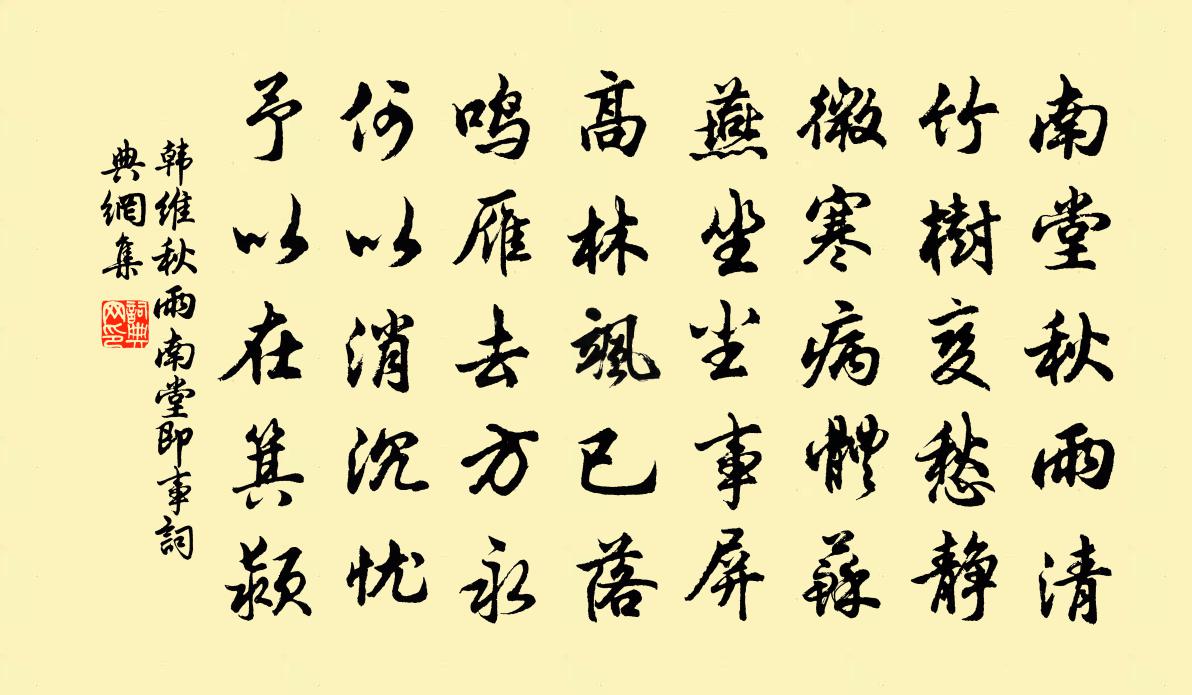 南堂秋雨清
竹樹变愁静
微寒病體蘇
燕坐尘事屏
高林飒已落
鸣雁去方永
何以消沉忧
予以在箕颍
韩維秋雨南堂即事詞
典網集
詞典网印